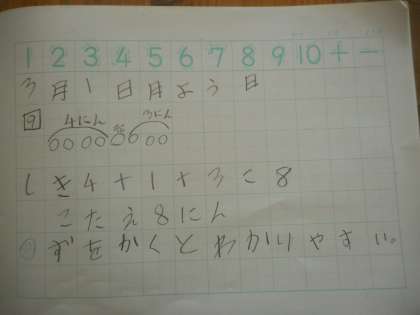 1 2 3 4 5 6 7 8 9 10 + −
3月1日月よう日
4にん 3にん
しき4+1+3=8
こたえ8にん
ずをかくとわかりやすい。